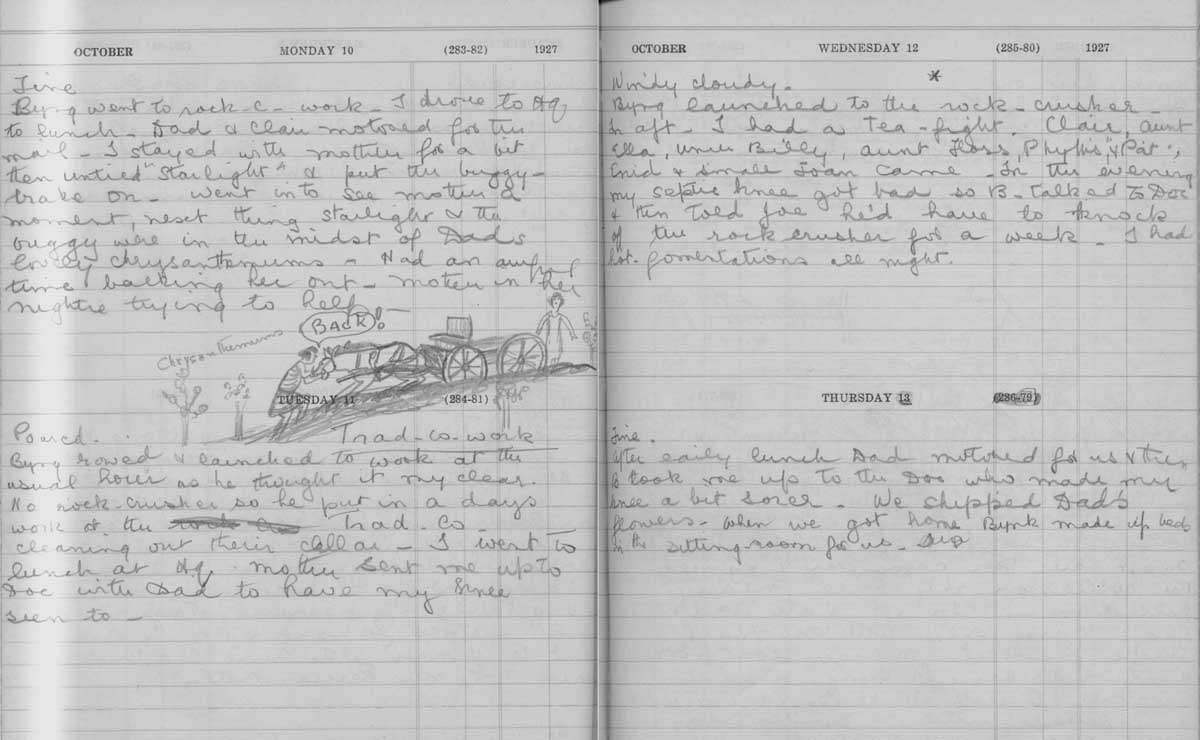 OCTOBER MONDAY 10 (283-82) 1927
Fine
Byrq went to rock-c- work - I drove to Hq
to lunch - Dad & Clair motored for the
mail - I stayed with mother for a bit
then untied "Starlight" & put the buggy-
brake on - went in to see mother a
moment, next thing starlight & the
buggy were in the midst of Dad's
lovely chrysanthemums - Had an awful
time backing her out - mother in her
nightie trying to help -
BACK!
Chrysanthemums
TUESDAY 11 (284-81)
Poured. Trad-co-work
Byrq rowed & launched to work at the
usual hour as he thought it may clear.
No rock-crusher so he put in a days
work at the Trad-Co-
cleaning out their cellar - I went to
lunch at Hq. mother sent me up to
Doc with Dad to have my knee
seen to -
OCTOBER WEDNESDAY 12 (285-80) 1927
Windy cloudy. *
Byrq launched to the rock-crusher -
In aft- I had a Tea-fight. Clair, aunt
Ella, uncle Billy, aunt Floss, Phyllis, & Pat,
Enid & small Joan came - In the evening
my septic knee got bad so B- talked to Doc
& then told Joe he'd have to knock
off the rock crusher for a week - I had
hot- fomentations all night.
THURSDAY 13 (286-79)
Fine.
After early lunch Dad motored for us & then
B took me up to the Doc who made my
knee a bit sorer. We shipped Dad's
flowers - when we got home Byrk made up beds
in the sitting-room for us -